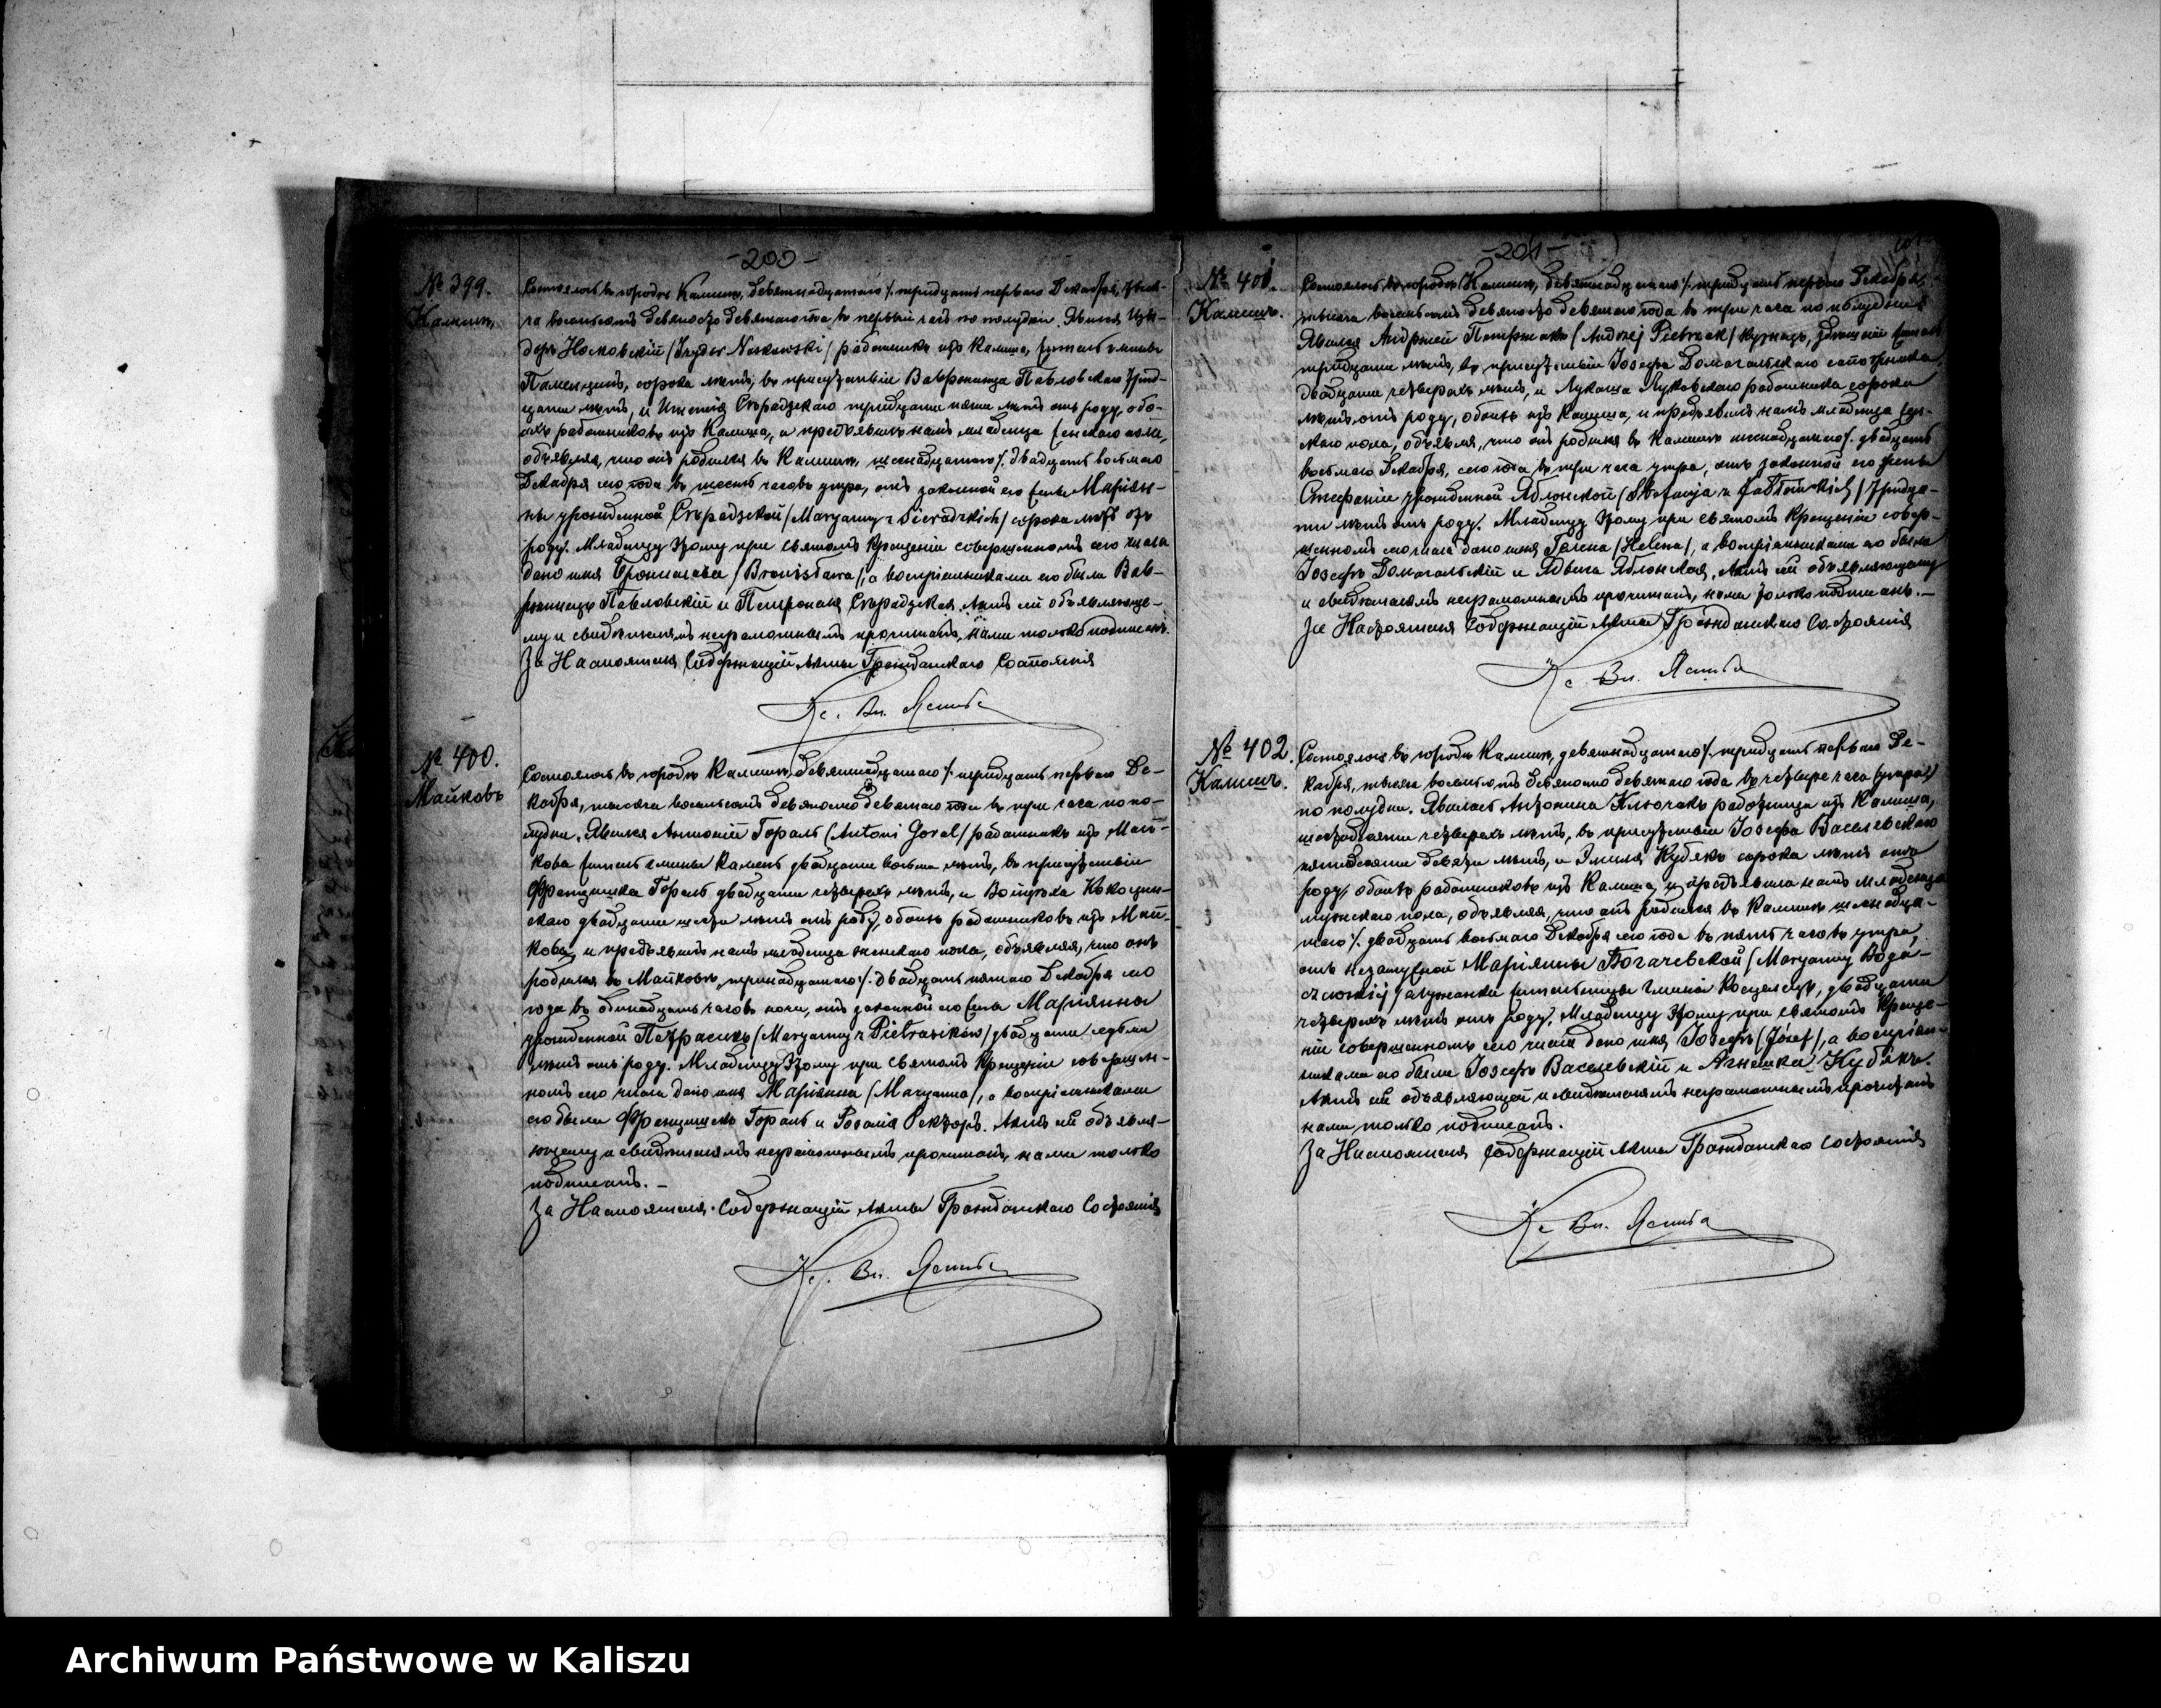 -200-
№ 399.
Калишъ
Состоялось въ городѣ Калишѣ, девятнадцатаго /. тридцать перваго Декабря, тыся-
ча восемьсотъ девяносто девятаго года въ первый часъ по полудни. Явился Изы-
доръ Носковскій /Izydor Noskowski/ работникъ изъ Калиша, житель гмины
сорока лѣтъ, въ присутствіи Вавржинца Павловскаго трид-
цати лѣтъ, и Сѣрадзкаго тридцати пяти лѣтъ отъ роду, обо-
ихъ работниковъ изъ Калиша, и предъявилъ намъ младенца женскаго пола,
объявляя, что онъ родился въ Калишѣ, шестнадцатаго /. двадцать восьмаго
Декабря сего года въ шесть часовъ утра, отъ законной его жены Маріан-
ны урожденной Сѣрадзской /Maryanny z Sieradzkich/ сорока лѣтъ отъ
роду. Младенцу этому при святомъ крещеніи совершенномъ сего числа
дано имя Брониславa /Bronisława/, а воспріемниками его были Вав-
ржинецъ Павловскій и Петронеля Сѣрадзская. Актъ сей объявляюще-
му и свидѣтелямъ неграмотнымъ прочитанъ, нами только подписанъ.
За Настоятеля Содержащій Акты Гражданскаго Состоянія
Кс. Вл.
№ 400.
Майковъ
Состоялось въ городѣ Калишѣ, девятнадцатаго /. тридцать перваго Де-
кабря, тысяча восемьсотъ девяносто девятаго года въ три часа по по-
лудни. Явился Антоній Гораль (Antoni Goral/ работникъ изъ Май-
кова житель гмины Каменъ двадцати восьми лѣтъ, въ присутствіи
Францишка Гораль двадцати четырехъ лѣтъ, и Войцѣха Кокоцин-
скаго двадцати шести лѣтъ отъ роду, обоихъ работниковъ изъ Май-
кова, и предъявилъ намъ младенца женскаго пола, объявляя, что онъ
родился въ Майковѣ, тринадцатаго /. двадцать пятаго Декабря сего
года въ одинадцать часовъ ночи, отъ законной его жены Маріанны
урожденной Петрасикъ /Maryanny z Pietrasików/ двадцати седьми
лѣтъ отъ роду. Младенцу этому при святомъ крещеніи совершен-
номъ сего числа дано имя Маріанна /Maryanna/, а воспріемниками
его были Францишекъ Гораль и Розалія Ректоръ. Актъ сей объявля-
ющему и свидѣтелямъ неграмотнымъ прочитанъ, нами только
подписанъ. –
За Настоятеля Содержащій Акты Гражданскаго Состоянія
Кс. Вл.
-201-
№ 401.
Калишъ.
Состоялось въ городѣ Калишѣ, девятнадцатаго /. тридцать перваго Декабря,
тысяча восемьсотъ девяносто девятаго года въ три часа по полудни.
Явился Андржей Петржакъ /Andrzej Pietrzak/ кузнецъ, здѣшній житель
тридцати лѣтъ, въ присутствіи Іосефа Домагальскаго сапожника
двадцати четырехъ лѣтъ, и Лукаша Луковскаго работника сорока
лѣтъ отъ роду, обоихъ изъ Калиша, и предъявилъ намъ младенца жен-
скаго пола, объявляя, что онъ родился въ Калишѣ шестнадцатаго /. двадцать
восьмаго Декабря, сего года въ три часа утра, отъ законной его жены
Стефаніи урожденной Яблонской /Stefanja z Jabłońskich/ тридца-
ти лѣтъ отъ роду. Младенцу этому при святомъ крещеніи совер-
шенномъ сего числа дано имя Гелена /Helena/, а воспріемниками его были
Іосефъ Домагальскій и Ядвига Яблонская. Актъ сей объявляющему
и свидѣтелямъ неграмотнымъ прочитанъ, нами только подписанъ. –
За Настоятеля Содержащій Акты Гражданскаго Состоянія
Кс. Вл.
№ 402.
Калишъ.
Состоялось въ городѣ Калишѣ, девятнадцатаго /. тридцать перваго Де-
кабря, тысяча восемьсотъ девяносто девятаго года въ четыре часа (утра)
по полудни. Явилась Антонина Клочакъ работница изъ Калиша,
шестьдесяти четырехъ лѣтъ, въ присутствіи Іосефа Васелевскаго
пятидесяти девяти лѣтъ, и Эмиля Кубякъ сорока лѣтъ отъ
роду, обоихъ работниковъ изъ Калиша, и предъявила намъ младенца
мужскаго пола, объявляя, что онъ родился въ Калишѣ шестнадца-
таго /. двадцать восьмаго Декабря сего года въ пять часовъ утра,
отъ незамужной Маріянны Богачевской /Maryanny Boga-
czewskiej/ служанки жительницы гмины Косцелецъ, двадцати
четырехъ лѣтъ отъ роду. Младенцу этому при святомъ креще-
ніи совершенномъ сего числа дано имя Іосефъ /Józef/, а воспріем-
никами его были Іосефъ Васелевскій и Агнешка Кубякъ.
Актъ сей объявляющей и свидѣтелямъ неграмотнымъ прочитанъ
нами только подписанъ.
За Настоятеля Содержащій Акты Гражданскаго Состоянія
Кс. Вл.
Archiwum Państwowe w Kaliszu